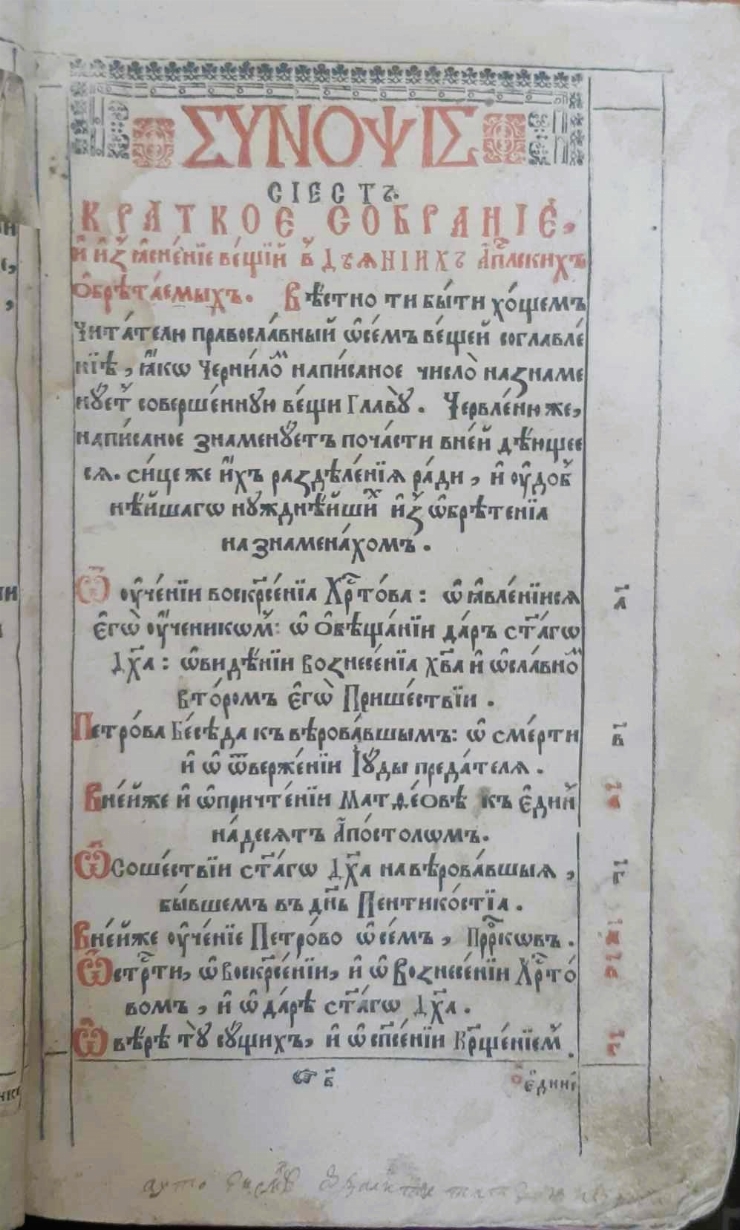 ΣΥΝΟΨΙΣ
СІЕСТЪ
КРА́ТКОЕ СОБРАНІЕ,
и҆ и҆ꙁ̾ꙗ҆сне́нїе ве́щїй в̾ Дѣѧ́НІИХЪ А҆пⷭ҇лскихъ
ѡ҆брѣта́емыхъ. Вѣ́стно ти бы́ти хо́щемъ
Чита́телю правосла́вный ѡ҆се́мъ ве́щей соглавле́
нїѣ, ꙗ҆́кѡ Черни́лоⷨ напи́саное число̀ наꙁна́ме
нꙋ́етⸯ соверше́ннꙋю ве́щи Главꙋ̀. Червле́ню же,
напи́саное знаменꙋ́етъ поча́сти вне́й дѣ́ющее
сѧ. си́це же и҆́хъ раꙁдѣле́нїѧ ра́ди, и҆ ᲂу҆доб̾
нѣ́йшагѡ нꙋждⸯнѣ́йшиⷯ и҆ꙁ̾ѡбрѣ́тенїѧ
на знамена́хомъ.
Ѡ҆ ᲂу҆че́нїи воскрⷭ҇е́нїѧ Хрⷭ҇то́ва: ѡ҆ ꙗ҆вле́нїисѧ
є҆гѡ̀ ᲂу҆ченикѡ́мⸯ: ѡ҆ ѡ҆бѣща́нїи да́ръ ст҃а́гѡ
Дх҃а: ѡ҆ви́дѣ́нїи Воꙁнесе́нїѧ хв҃а и҆ ѡ҆сла́вноⷨ
вто́ромъ є҆гѡ̀ Прише́ствїи.
Петро́ва Бесѣ́да къ вѣрова́вшымъ: ѡ҆ сме́рти
и҆ ѡ҆ ѿверже́нїи Іꙋ́ды преда́телѧ.
Вне́йже и҆ ѡ҆причте́нїи Матѳе́овѣ къ є҆ди́нⸯ
на́десѧтъ А҆по́столѡмъ.
Ѡ҆Соше́ствїи ст҃а́гѡ Дх҃а на вѣрова́вшыѧ,
бы́вшемъ въ дн҃ь Пентико́стїа.
Вне́йже ᲂу҆че́нїе Петро́во ѡ҆се́мъ, Прⷪ҇ркѡвъ.
Ѡ҆стрⷭ҇ти, ѡ҆Воскрⷭ҇е́нїи, и҆ ѡ҆ Воꙁнесе́нїи Хрⷭ҇то́
вомъ, и҆ ѡ҆ да́рѣ ст҃а́гѡ Дх҃а.
Ѡ҆ вѣ́рѣ тꙋ̀ сꙋ́щихъ, и҆ ѡ҆сп҃се́нїи Крⷭ҇ще́нїемⸯ.
в҃
є҆дине́